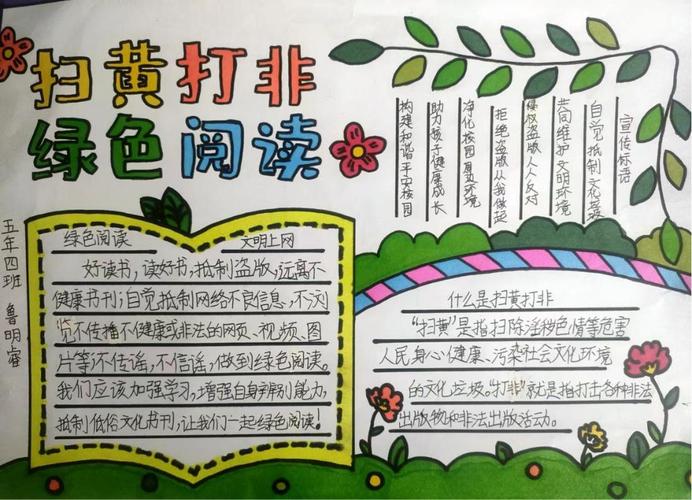 扫黄打非
绿色阅读
五年四班 鲁明睿
绿色阅读 文明上网
好读书,读好书,抵制盗版,远离不
健康书刊;自觉抵制网络不良信息,不浏
览不传播不健康或非法的网页、视频、图
片等;不传谣,不信谣,做到绿色阅读。
我们应该加强学习,增强自身辨别能力,
抵制低俗文化书刊,让我们一起绿色阅读!
宣传标语
自觉抵制文化垃圾
共同维护文明环境
侵权盗版人人反对
拒绝盗版从我做起
净化校园周边环境
助力孩子健康成长
构建和谐平安校园
什么是扫黄打非
“扫黄”是指扫除淫秽色情等危害
人民身心健康、污染社会文化环境
的文化垃圾。“打非”就是指打击各种非法
出版物和非法出版活动。